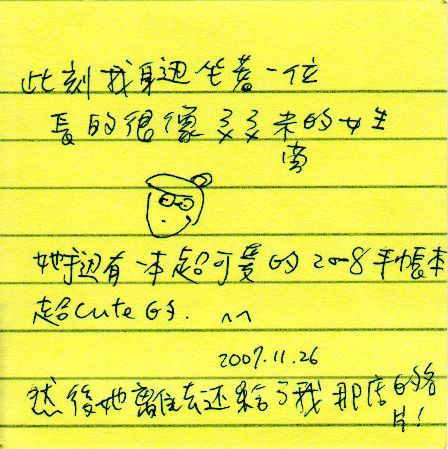 此刻我身邊坐著一位
長的很像多多来的女生
她手邊有一本超可愛的2008年帳本
超cute的. ^^
2007.11.26
然後她離去还給了我那店的名
片!